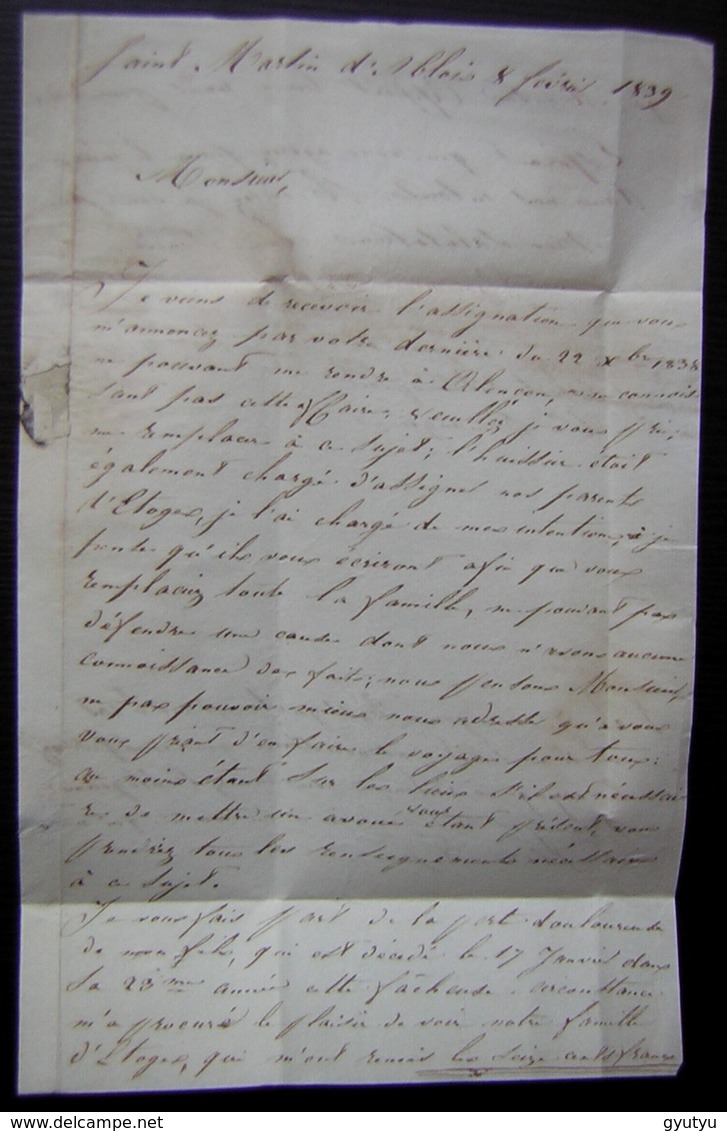 Saint Martin d'Ablois 8 février 1839
Monsieur,
Je viens de recevoir l'assignation que vous
m'annoncez par votre dernière du 22 Xbre 1838
ne pouvant me rendre à Alençon, ne connois
sant pas cette affaire, veuillez, je vous prie,
me remplacer à ce sujet; l'huissier étoit
également chargé d'assigner nos parents
d'Etoges, je l'ai chargé de mes intentions, je
pense qu'ils vous écriront afin que vous
remplaciez toute la famille, ne pouvant pas
défendre une cause dont nous n'avons aucune
connoissance des faits; nous pensons Monsieur,
ne pas pouvoir mieux nous adresser qu'à vous
vous priant d'en faire le voyage pour tous:
au moins étant sur les lieux s'il est nécessai
re de mettre un avoué vous étant présent, vous
prendrez tous les renseignements nécessaires
à ce sujet.
Je vous fais part de la perte douloureuse
de mon fils, qui est décédé le 17 Janvier dans
sa 23me année cette fâcheuse circonstance
m'a procuré le plaisir de voir notre famille
d'Etoges, qui m'ont remis les seize cents francs
gyutyu